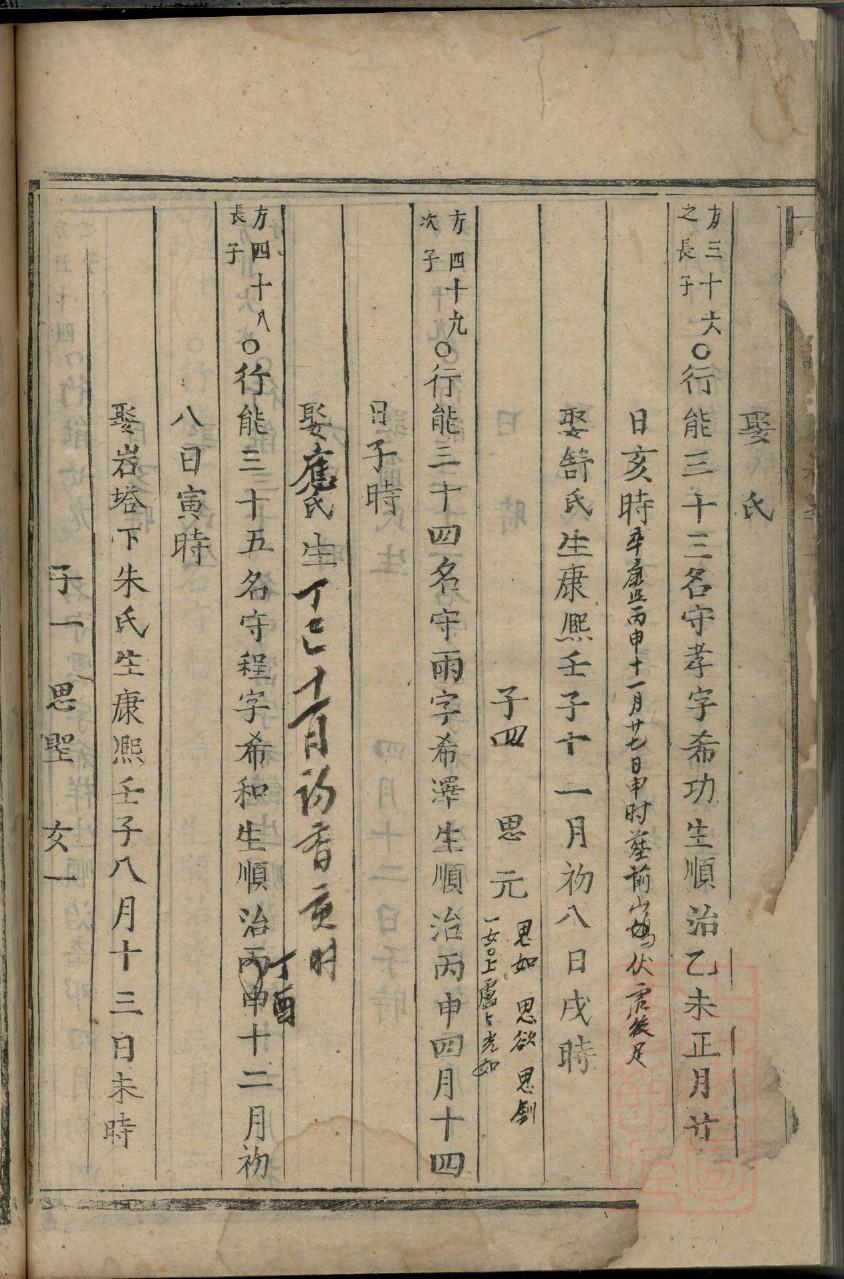 娶 氏
方三十六之長子○行能三十三名守孝字希功生順治乙未正月廿
日亥時卒康熙丙申十一月廿七日申时葬前山
娶舒氏生康熙壬子十一月初八日戌時
子四 思元 思如 思欲 思釗 一女
方四十九次子○行能三十四名守雨字希澤生順治丙申四月十四
日子時
娶應氏生丁巳十一月初 亥时
方四十八長子○行能三十五名守程字希和生順治丙申丁酉十二月初
八日寅時
娶岩塔下朱氏生康熙壬子八月十三日未時
子一 思聖 女一